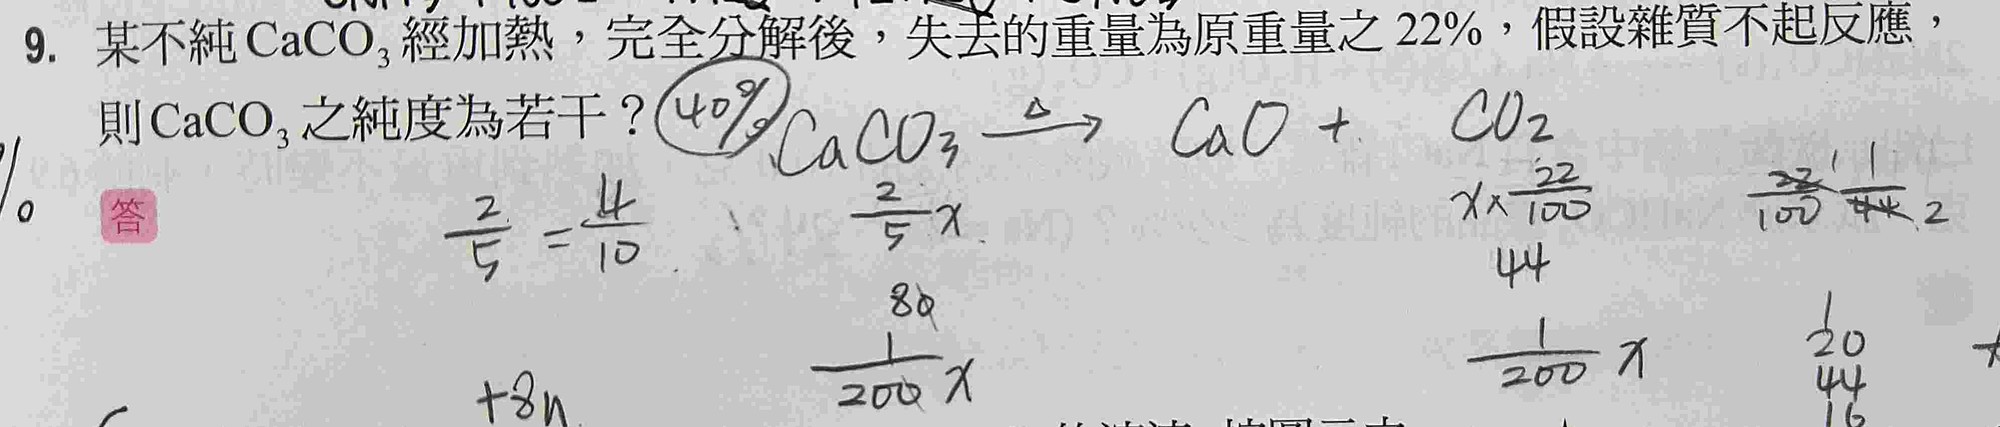 9. 某不純CaCO₃經加熱，完全分解後，失去的重量為原重量之22%，假設雜質不起反應，
則CaCO₃之純度為若干？ 40%
CaCO₃ —Δ→ CaO + CO₂
答
2/5 = 4/10
2/5 x
x × 22/100
22/100 1 1/44 2
44
80
1/200 x
1/200 x
1
20
44
16
+8n
%